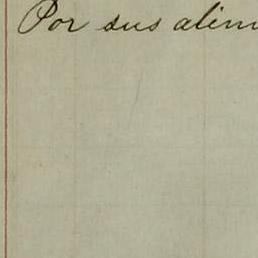 Por sus alim